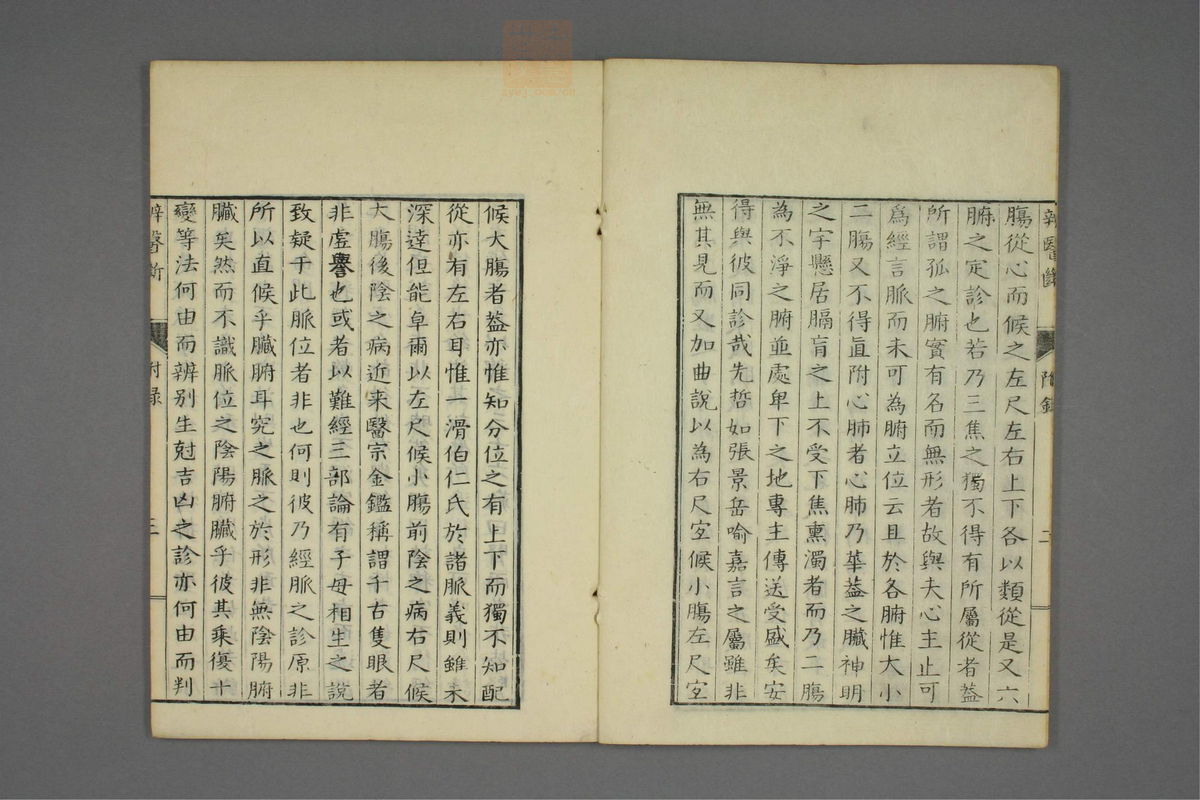 辨醫斷 附錄 二
腸從心而候之左尺左右上下各以類從是又六
腑之定診也若乃三焦之獨不得有所屬從者蓋
所謂孤之腑實有名而無形者故與夫心主止可
爲經言脈而未可為腑立位云且於各腑惟大小
二腸又不得眞附心肺者心肺乃華蓋之臟神明
之宇懸居膈肓之上不受下焦熏濁者而乃二腸
為不淨之腑並處卑下之地專主傳送受盛矣安
得與彼同診哉先哲如張景岳喻嘉言之屬雖非
無其見而又加曲說以為右尺宐候小腸左尺宐
候大腸者蓋亦惟知分位之有上下而獨不知配
從亦有左右耳惟一滑伯仁氏於諸脈義則雖未
深達但能卓爾以左尺候小腸前陰之病右尺候
大腸後陰之病近来醫宗金鑑稱謂千古隻眼者
非虛譽也或者以難經三部論有子母相生之說
致疑于此脈位者非也何則彼乃經脈之診原非
所以直候乎臟腑耳究之脈之於形非無陰陽腑
臟矣然而不識脈位之陰陽腑臟乎彼其乘復十
變等法何由而辨别生尅吉凶之診亦何由而判
辨醫斷 附録 三